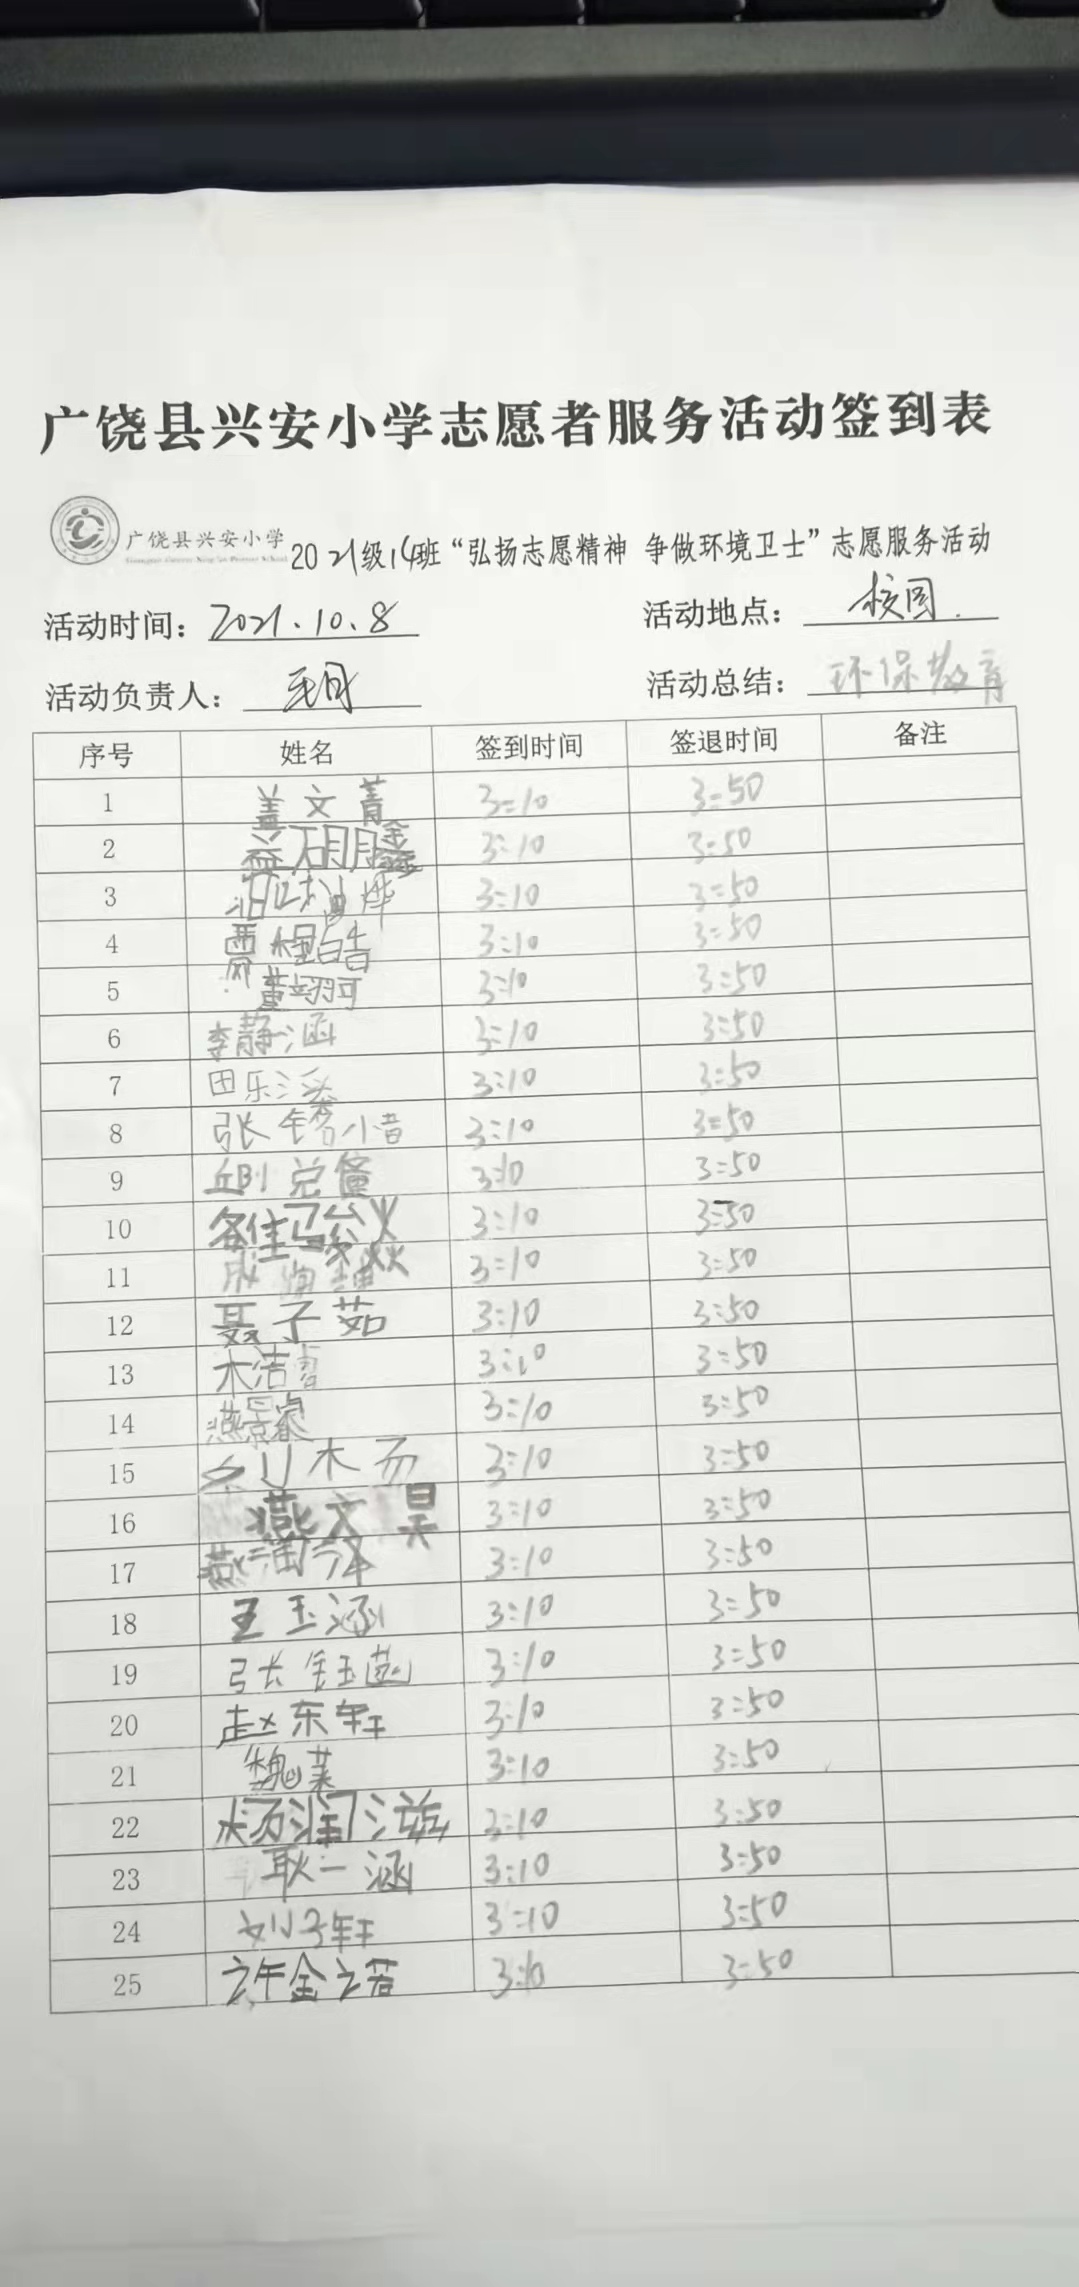 广饶县兴安小学志愿者服务活动签到表
广饶县兴安小学 2021级14班“弘扬志愿精神 争做环境卫士”志愿服务活动
活动时间：2021.10.8 活动地点：校园.
活动负责人： 活动总结：环保教育
序号 姓名 签到时间 签退时间 备注
1 盖文菁 3:10 3:50
2 3:10 3:50
3 3:10 3:50
4 贾程皓 3:10 3:50
5 董翊珂 3:10 3:50
6 李静涵 3:10 3:50
7 田乐溪 3:10 3:50
8 张 3:10 3:50
9 3:10 3:50
10 3:10 3:50
11 3:10 3:50
12 聂子茹 3:10 3:50
13 3:10 3:50
14 燕景睿 3:10 3:50
15 3:10 3:50
16 燕文昊 3:10 3:50
17 燕润泽 3:10 3:50
18 王玉涵 3:10 3:50
19 张钰菡 3:10 3:50
20 赵东轩 3:10 3:50
21 魏莱 3:10 3:50
22 杨润滋 3:10 3:50
23 耿一涵 3:10 3:50
24 刘子轩 3:10 3:50
25 3:10 3:50